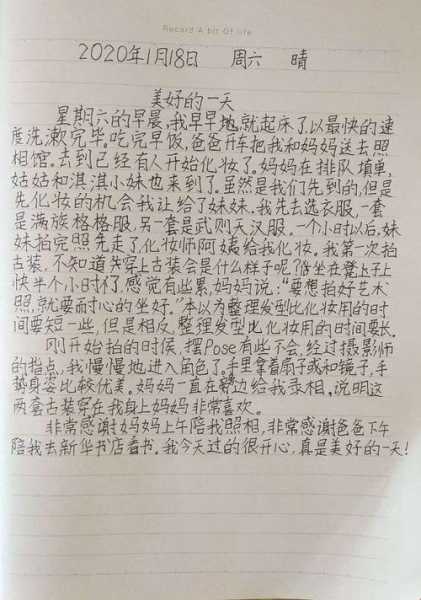 Record A bit Of life
2020年1月18日 周六 晴
美好的一天
星期六的早晨,我早早地,就起床了,以最快的速
度洗漱完毕。吃完早饭,爸爸开车把我和妈妈送去照
相馆。去到已经有人开始化妆了。妈妈在排队填单,
姑姑和淇淇小妹也来到了。虽然是我们先到的,但是
先化妆的机会我让给了妹妹。我先去选衣服,一套
是满族格格服,另一套是武则天汉服。一个小时以后,妹
妹拍完照先走了,化妆师阿姨给我化妆。我第一次拍
古装,不知道穿上古装会是什么样子呢?坐在凳子上
快半个小时了,感觉有些累,妈妈说:“要想拍好艺术
照,就要耐心的坐好。”本以为整理发型比化妆用的时
间要短一些,但是相反,整理发型比化妆用的时间要长。
刚开始拍的时候,摆Pose有些不会,经过摄影师
的指点,我慢慢地进入角色了。手里拿着扇子或和镜子,手
势身姿比较优美。妈妈一直在旁边给我录相。说明这
两套古装穿在我身上妈妈非常喜欢。
非常感谢妈妈上午陪我照相,非常感谢爸爸下午
陪我去新华书店看书。我今天过的很开心,真是美好的一天!